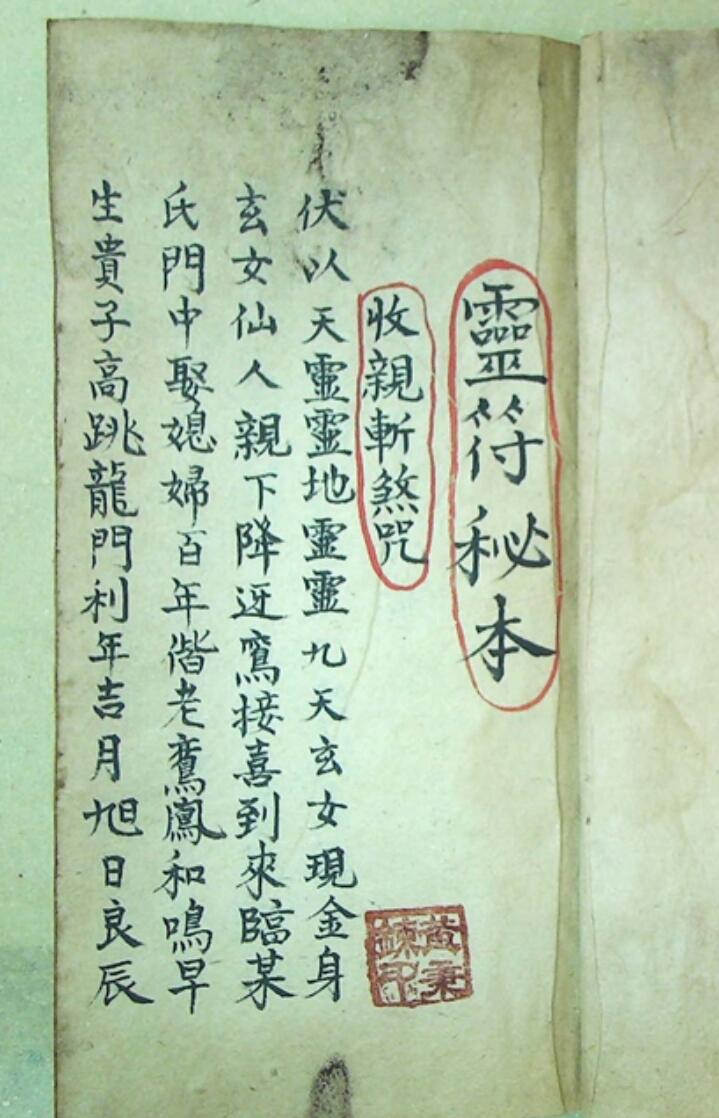 靈符秘本
收親斬煞咒
伏以天靈靈地靈靈九天玄女現金身
玄女仙人親下降迓鸾接喜到來臨某
氏門中娶媳婦百年偕老鸞鳳和鳴早
生貴子高跳龍門利年吉月旭日良辰